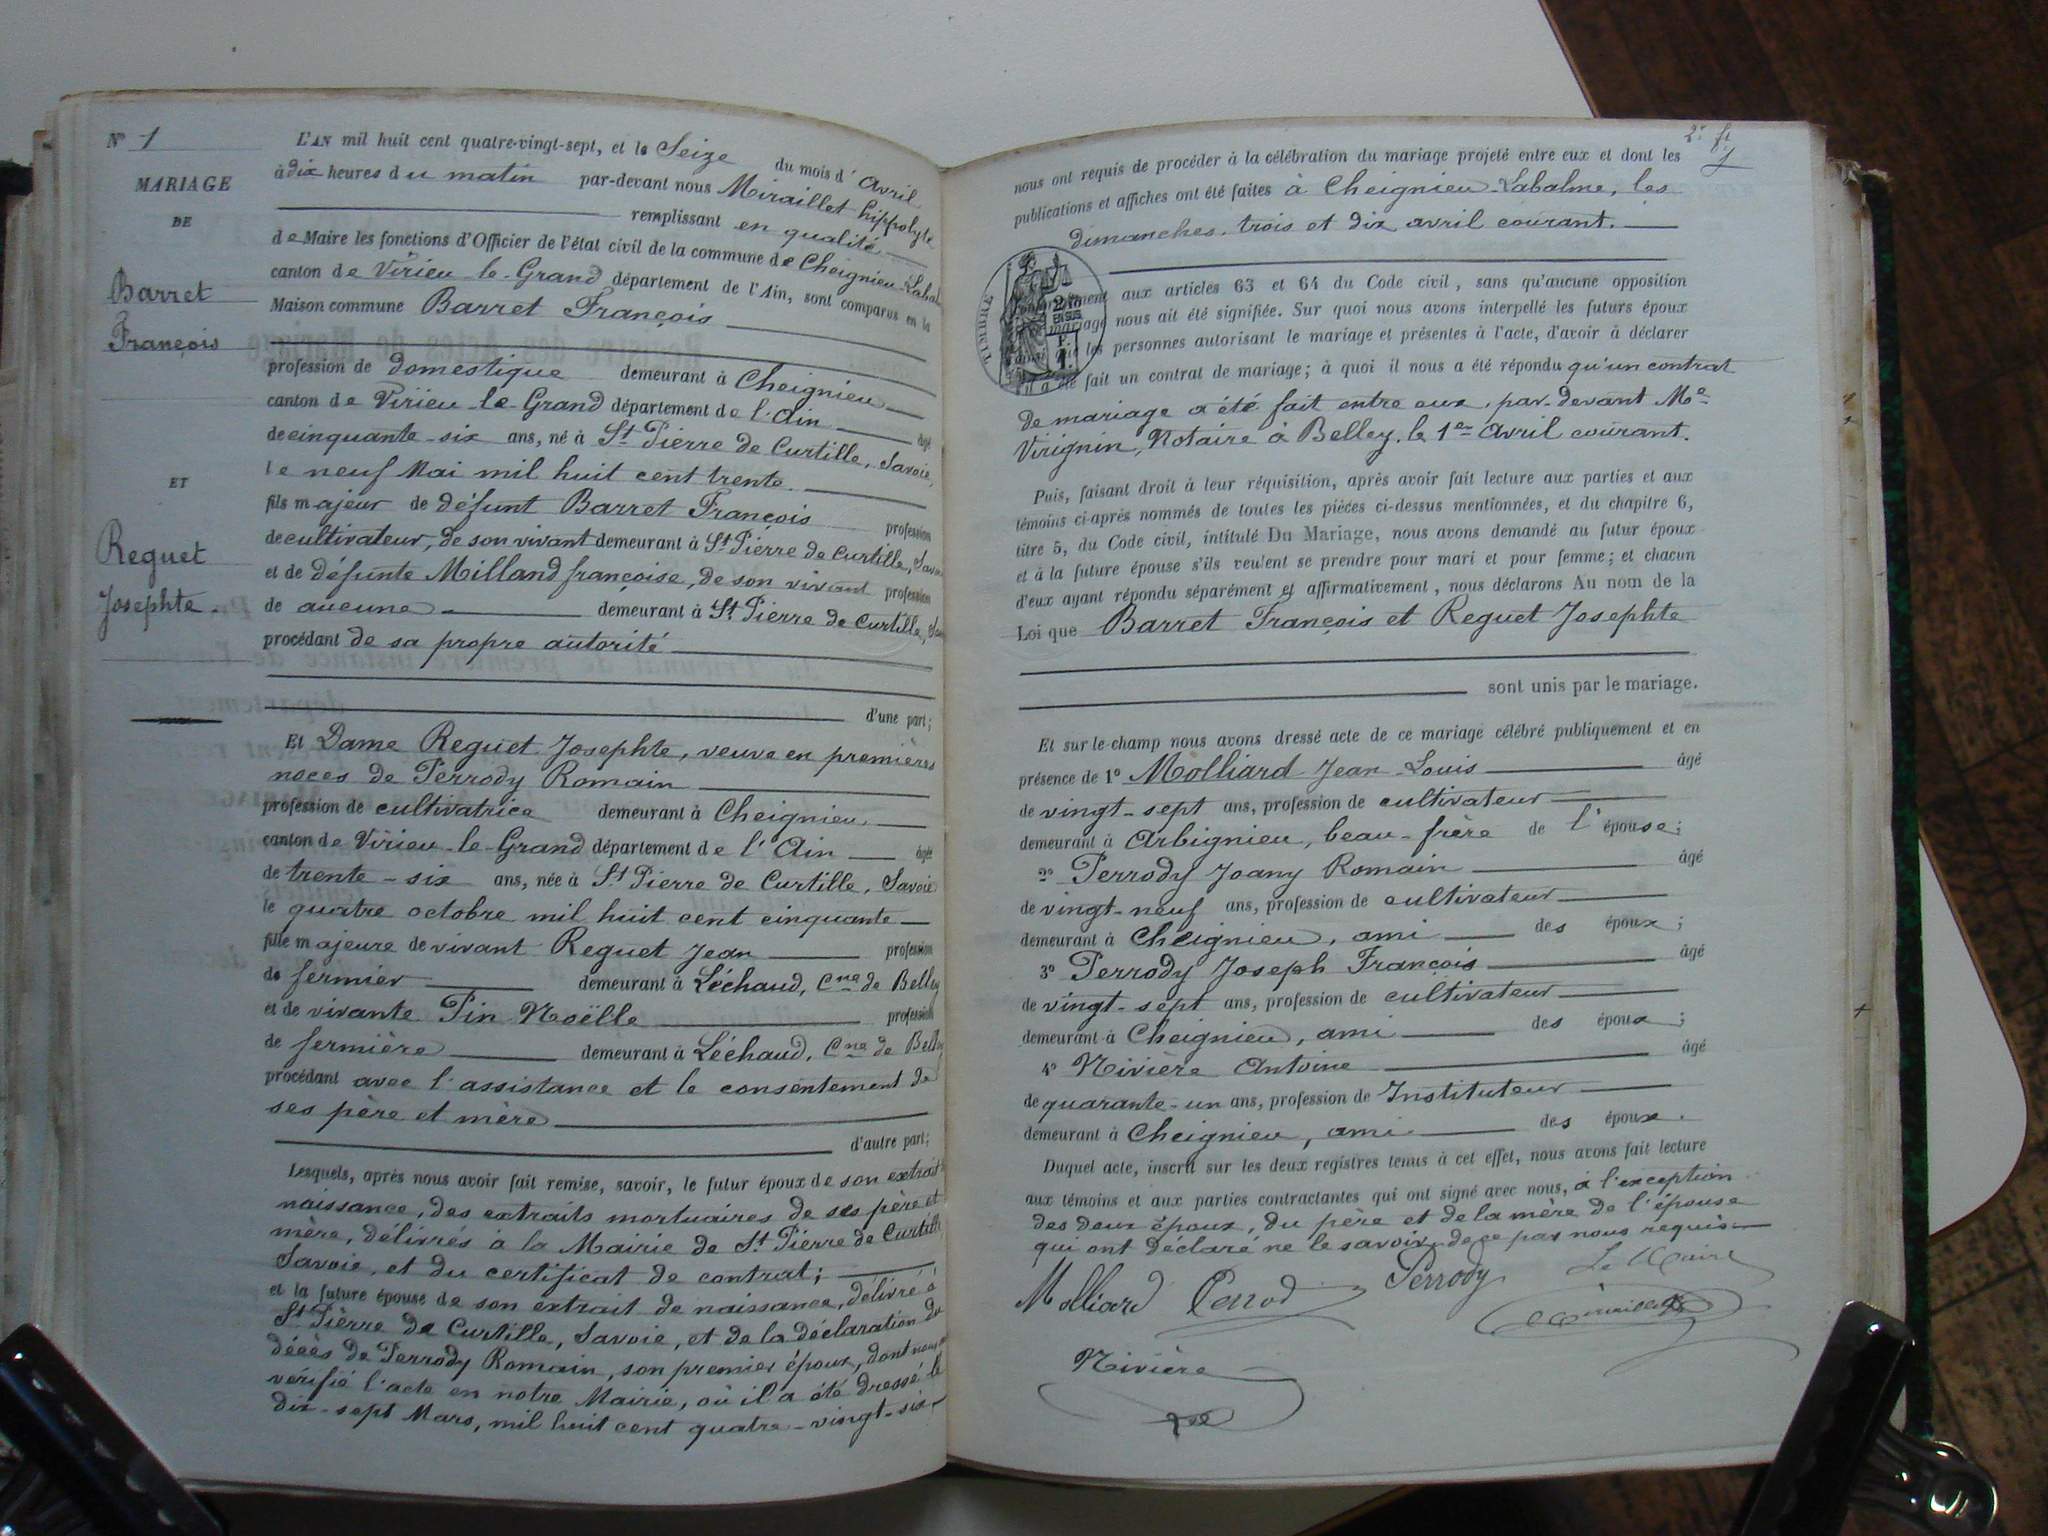 N° 1
MARIAGE
DE
Barret
François
ET
Reguet
Josephte.
L'AN mil huit cent quatre-vingt-sept, et le Seize du mois d'Avril
à dix heures du matin par-devant nous Miraillet hippolyte
remplissant en qualité
de Maire les fonctions d'Officier de l'état civil de la commune de Cheignieu-Labal
canton de Virieu-le-Grand département de l'Ain, sont comparus en la
Maison commune Barret François
profession de domestique demeurant à Cheignieu
canton de Virieu-le-Grand département de l'Ain âgé
de cinquante-six ans, né à St Pierre de Curtille, Savoie,
le neuf Mai mil huit cent trente
fils majeur de défunt Barret François profession
de cultivateur, de son vivant demeurant à St Pierre de Curtille, Savoie
et de défunte Milland françoise, de son vivant profession
de aucune demeurant à St Pierre de Curtille,
procédant de sa propre autorité
d'une part;
Et Dame Reguet Josephte, veuve en premières
noces de Perrody Romain
profession de cultivatrice demeurant à Cheignieu
canton de Virieu-le-Grand département de l'Ain âgée
de trente-six ans, née à St Pierre de Curtille, Savoie
le quatre octobre mil huit cent cinquante
fille majeure de vivant Reguet Jean profession
de fermier demeurant à Léchaud, Cne de Belley
et de vivante Pin Noëlle profession
de fermière demeurant à Léchaud, Cne de Belley
procédant avec l'assistance et le consentement de
ses père et mère
d'autre part;
Lesquels, après nous avoir fait remise, savoir, le futur époux de son extrait
naissance, des extraits mortuaires de ses père et
mère, délivrés à la Mairie de St Pierre de Curtille
Savoie, et du certificat de contrat;
et la future épouse de son extrait de naissance, délivré à
St Pierre de Curtille, Savoie, et de la déclaration du
décès de Perrody Romain, son premier époux, dont nous
vérifié l'acte en notre Mairie, où il a été dressé le
dix-sept Mars, mil huit cent quatre-vingt-six
2e
nous ont requis de procéder à la célébration du mariage projeté entre eux et dont les
publications et affiches ont été faites à Cheignieu-Labalme, les
dimanches trois et dix avril courant.
TIMBRE
2/10
EN SUS
F.
1.
aux articles 63 et 64 du Code civil, sans qu'aucune opposition
mariage nous ait été signifiée. Sur quoi nous avons interpellé les futurs époux
les personnes autorisant le mariage et présentes à l'acte, d'avoir à déclarer
il a été fait un contrat de mariage; à quoi il nous a été répondu qu'un contrat
de mariage a été fait entre eux, par-devant Me
Virignin, Notaire à Belley, le 1er Avril courant.
Puis, faisant droit à leur réquisition, après avoir fait lecture aux parties et aux
témoins ci-après nommés de toutes les pièces ci-dessus mentionnées, et du chapitre 6,
titre 5, du Code civil, intitulé Du Mariage, nous avons demandé au futur époux
et à la future épouse s'ils veulent se prendre pour mari et pour femme; et chacun
d'eux ayant répondu séparément et affirmativement, nous déclarons Au nom de la
Loi que Barret François et Reguet Josephte
sont unis par le mariage.
Et sur-le-champ nous avons dressé acte de ce mariage célébré publiquement et en
présence de 1° Molliard Jean-Louis âgé
de vingt-sept ans, profession de cultivateur
demeurant à Arbignieu, beau-frère de l'épouse;
2° Perrody Joany Romain âgé
de vingt-neuf ans, profession de cultivateur
demeurant à Cheignieu, ami des époux;
3° Perrody Joseph François âgé
de vingt-sept ans, profession de cultivateur
demeurant à Cheignieu, ami des époux;
4° Rivière Antoine âgé
de quarante-un ans, profession de Instituteur
demeurant à Cheignieu, ami des époux.
Duquel acte, inscrit sur les deux registres tenus à cet effet, nous avons fait lecture
aux témoins et aux parties contractantes qui ont signé avec nous, à l'exception
des deux époux, du père et de la mère de l'épouse
qui ont déclaré ne le savoir de ce par nous requis
Molliard Perrod Perrody Le Maire
Miraillet
Rivière